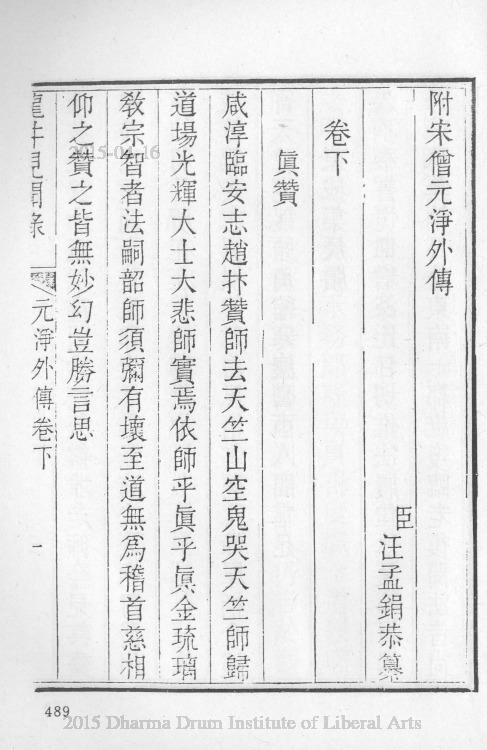 附宋僧元淨外傳
臣汪孟鋗恭纂
卷下
眞贊
咸淳臨安志趙抃贊師去天竺山空鬼哭天竺師歸
道場光輝大士大悲師實焉依師乎眞乎眞金琉璃
敎宗智者法嗣韶師須彌有壞至道無爲稽首慈相
仰之贊之皆無妙幻豈勝言思
龍井見聞錄
元淨外傳卷下
一
489
2015-04-16
2015 Dharma Drum Institute of Liberal Arts